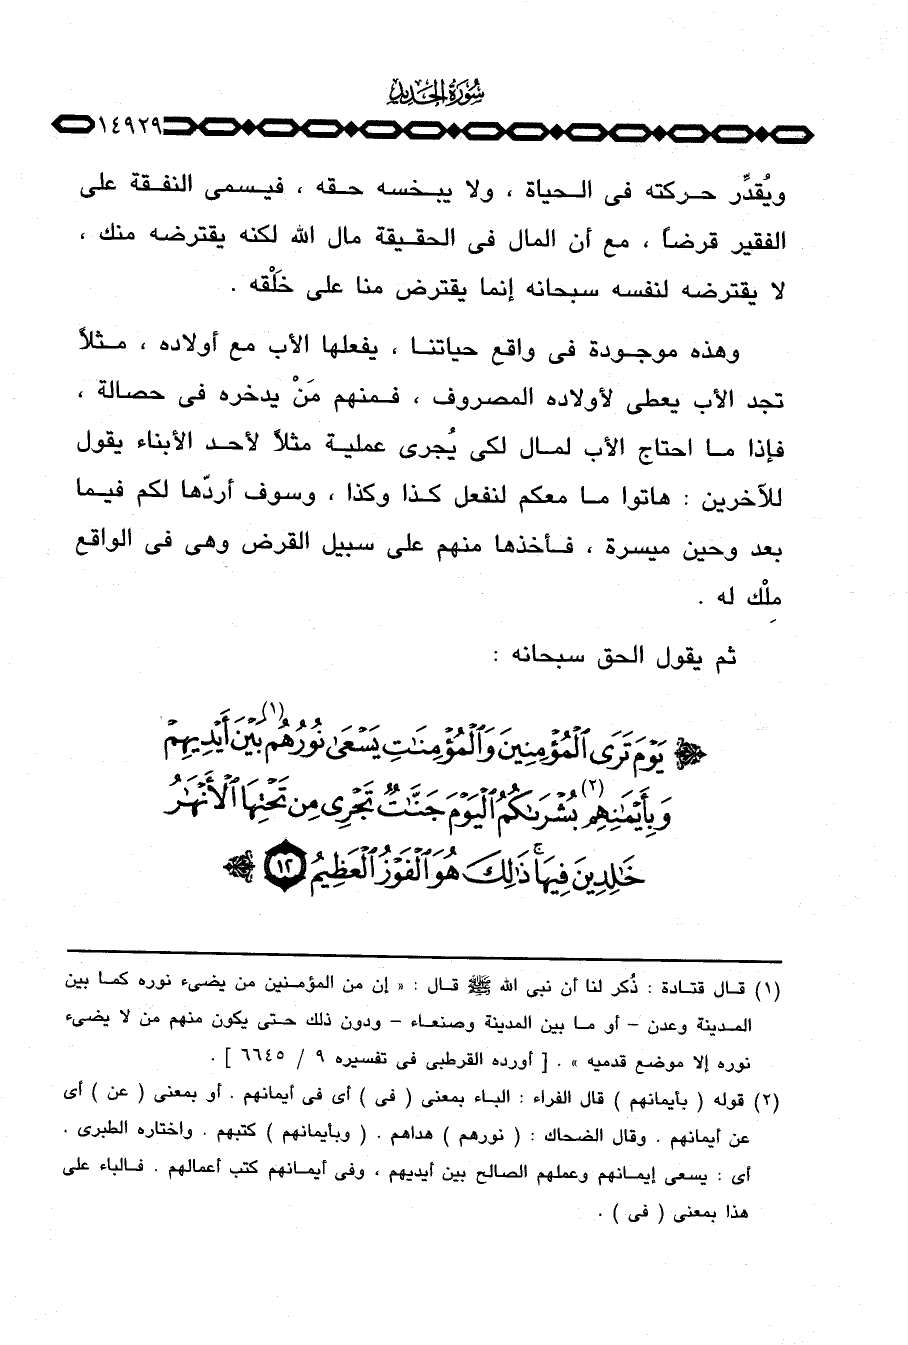 سُورَةُ الحَدِيدِ
١٤٩٢٩
ويُقدِّر حركته فى الحياة ، ولا يبخسه حقه ، فيسمى النفقة على
الفقير قرضاً ، مع أن المال فى الحقيقة مال الله لكنه يقترضه منك ،
لا يقترضه لنفسه سبحانه إنما يقترض منا على خلْقه .
وهذه موجودة فى واقع حياتنا ، يفعلها الأب مع أولاده ، مثلاً
تجد الأب يعطى لأولاده المصروف ، فمنهم مَنْ يدخره فى حصالة ،
فإذا ما احتاج الأب لمال لكى يُجرى عملية مثلاً لأحد الأبناء يقول
للآخرين : هاتوا ما معكم لنفعل كذا وكذا ، وسوف أردّها لكم فيما
بعد وحين ميسرة ، فأخذها منهم على سبيل القرض وهى فى الواقع
مِلْك له .
ثم يقول الحق سبحانه :
يَوْمَ تَرَى ٱلْمُؤْمِنِينَ وَٱلْمُؤْمِنَٰتِ يَسْعَىٰ نُورُهُم(١) بَيْنَ أَيْدِيهِمْ
وَبِأَيْمَٰنِهِم(٢) بُشْرَىٰكُمُ ٱلْيَوْمَ جَنَّٰتٌ تَجْرِى مِن تَحْتِهَا ٱلْأَنْهَٰرُ
خَٰلِدِينَ فِيهَا ۚ ذَٰلِكَ هُوَ ٱلْفَوْزُ ٱلْعَظِيمُ ١٢
(١) قال قتادة : ذُكر لنا أن نبى الله ﷺ قال : « إن من المؤمنين من يضىء نوره كما بين
المدينة وعدن - أو ما بين المدينة وصنعاء - ودون ذلك حتى يكون منهم من لا يضىء
نوره إلا موضع قدميه » . [ أورده القرطبى فى تفسيره ٩ / ٦٦٤٥ ] .
(٢) قوله ( بأيمانهم ) قال الفراء : الباء بمعنى ( فى ) أى فى أيمانهم . أو بمعنى ( عن ) أى
عن أيمانهم . وقال الضحاك : ( نورهم ) هداهم . ( وبأيمانهم ) كتبهم . واختاره الطبرى .
أى : يسعى إيمانهم وعملهم الصالح بين أيديهم ، وفى أيمانهم كتب أعمالهم . فالباء على
هذا بمعنى ( فى ) .